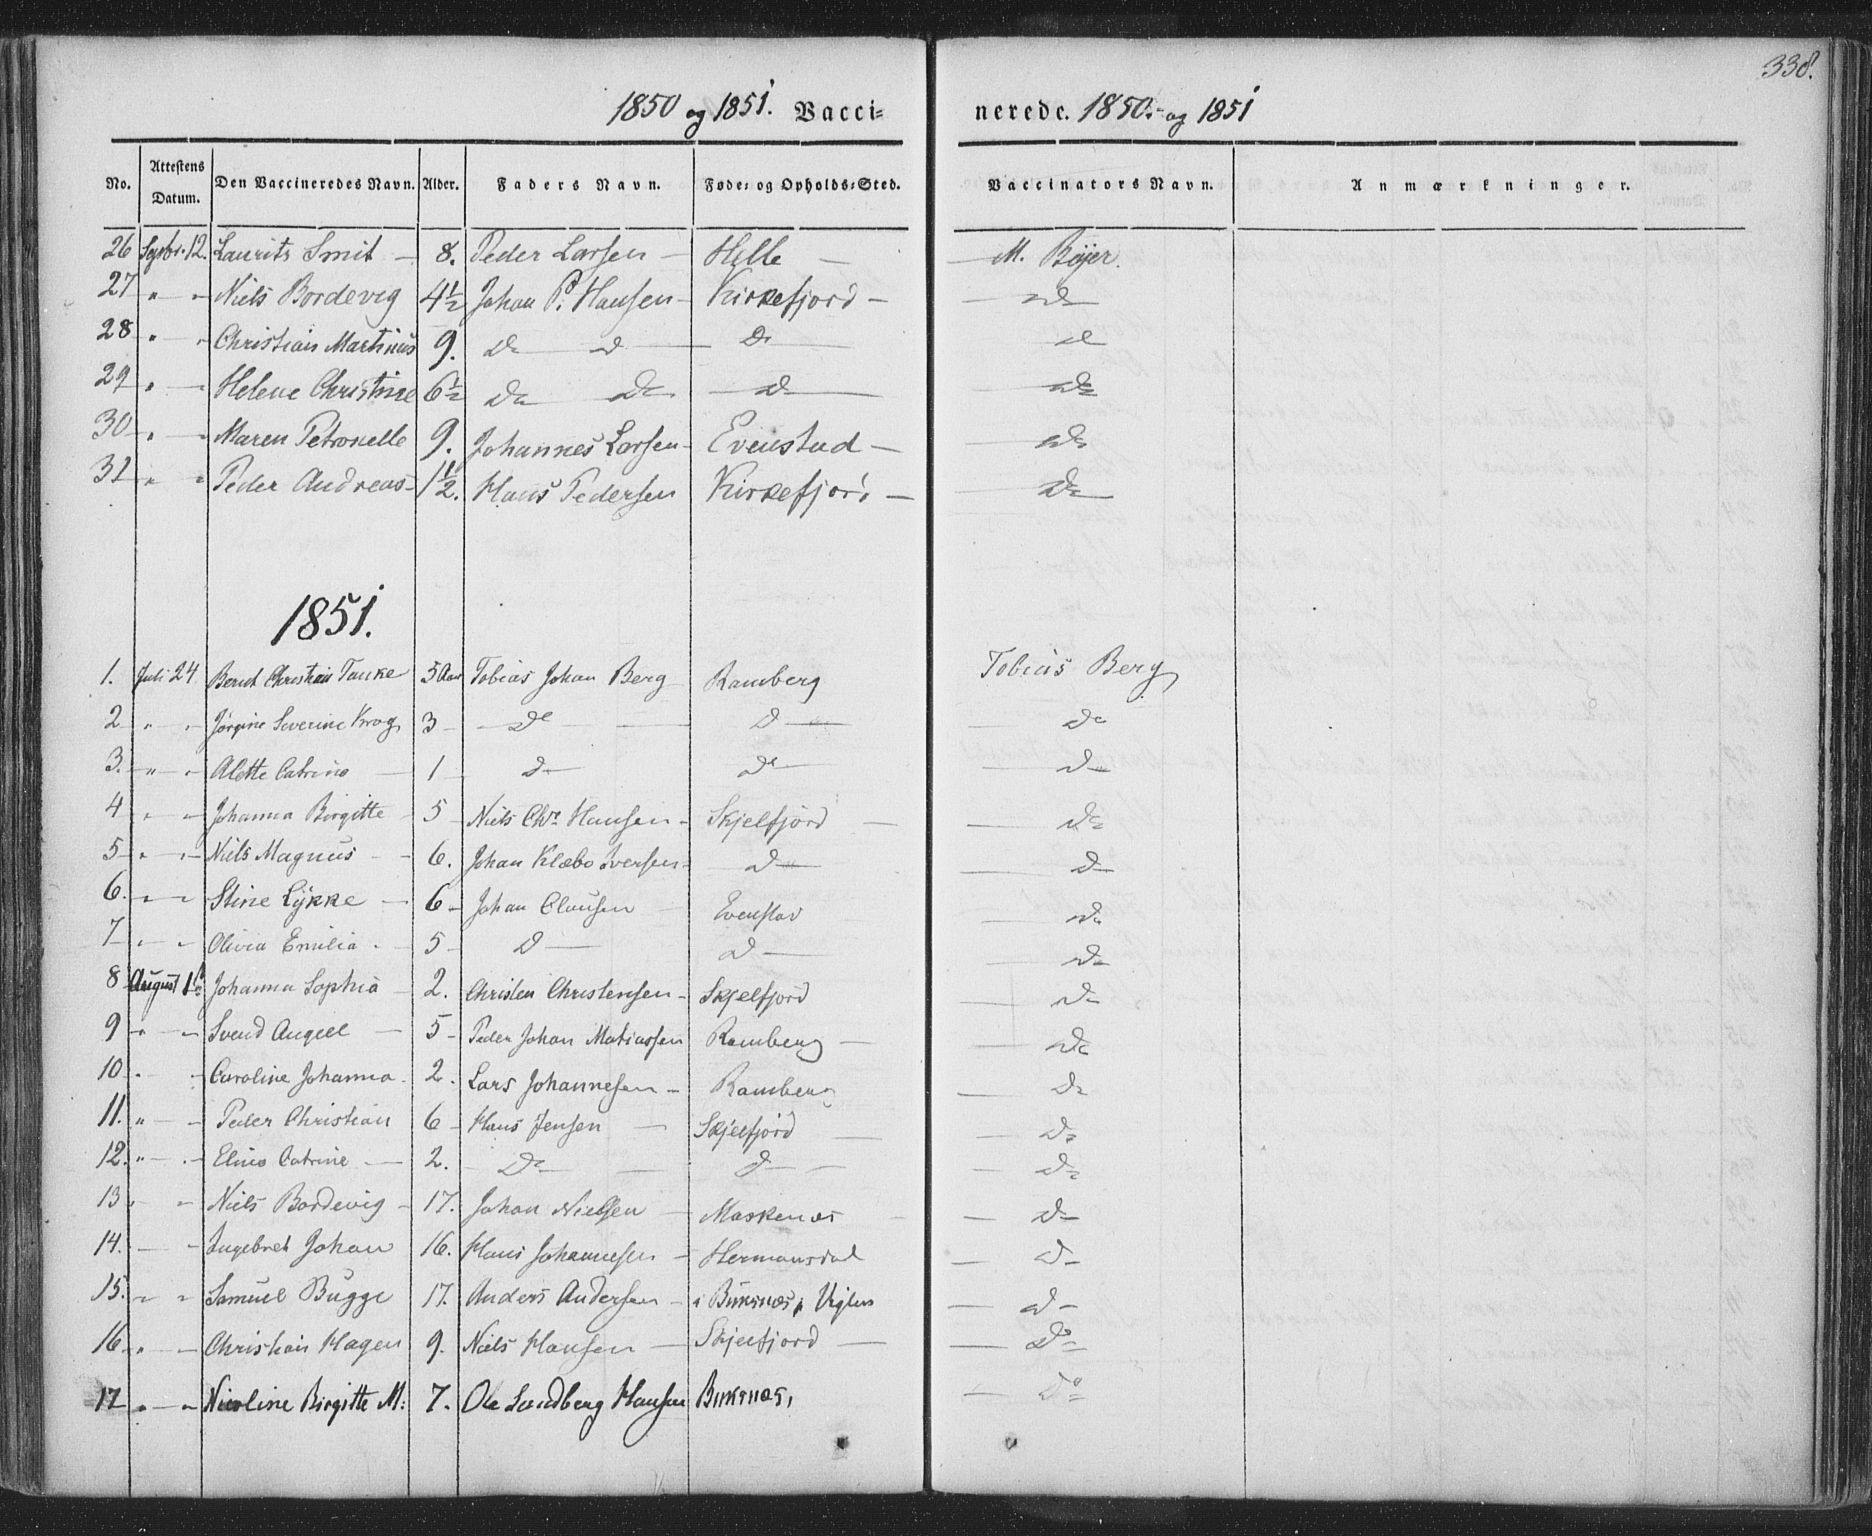 338.
1850 og 1851. Vacci= nerede. 1850 og 1851
No. Attestens Datum. Den Vaccineredes Navn. Alder. Faders Navn. Føde= og Opholds=Sted. Vaccinators Navn. Anmærkninger.
26 Septbr. 12. Laurits Smit — 8. Peder Larsen — Helle — M. Böjer.
27 " " Niels Bordevig 4½ Johan P. Hansen — Kirkefjord — do
28 " " Christian Martinus 9. Do D — Do — d
29 " " Helene Christine 6½ Do Do — D — Do
30 " " Maren Petronelle 9. Johannes Larsen — Evenstad — Do
31 " " Peder Andreas — 1½. Hans Pedersen Kirkefjord — Do
1851.
1. Juli 24 Bernt Christian Tanke 5 Aar Tobias Johan Berg Ramberg Tobias Berg
2 " " Jörgine Severine Krog 3 — Do — D — Do
3. " " Alette Catrine — 1 — D — Do — D
4 " " Johanna Birgitte 5 Niels Chr. Hansen — Skjelfjord — Do
5 " " Niels Magnus — 6. Johan Klæbo Iversen D — D
6. " " Stine Lykke — 6 — Johan Clausen Evenstad — Do
7 " " Olivia Emilia — 5 — D — D — Do
8 August 1 Johanna Sophia — 2. Christen Christensen — Skjelfjord — Do
9 " " Svend Angell — 5 — Peder Johan Matiassen Ramberg — Do
10 " " Caroline Johanna 2. Lars Johannesen — Ramberg Do
11. " " Peder Christian 6 — Hans Jensen — Skjelfjord — Do
12. " " Catrine — 2. — Do — D — — Do
13 " " Niels Bordevig — 17. Johan Nielsen — Moskenæs — D
14. " Ingebret Johan 16. Hans Johannesen — Hermansdal — D
15. " " Samuel Bugge 17. Anders Andersen — i Buksnæs, — D
16 " " Christian Hagen 9. Niels Hansen — Skjelfjord — Do
17 " " Nicoline Birgitte M: 7. Ole Sundberg Hansen Buksnæs, — Do